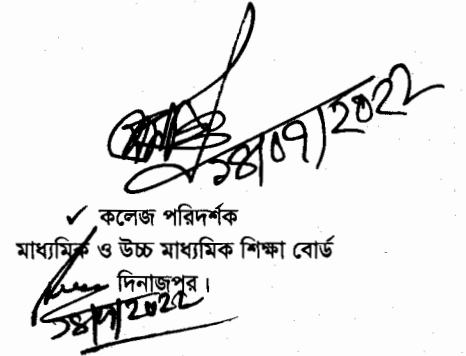 ১৪/০৭/২০২২
✓ কলেজ পরিদর্শক
মাধ্যমিক ও উচ্চ মাধ্যমিক শিক্ষা বোর্ড
দিনাজপুর।
১৪/৭/২০২২